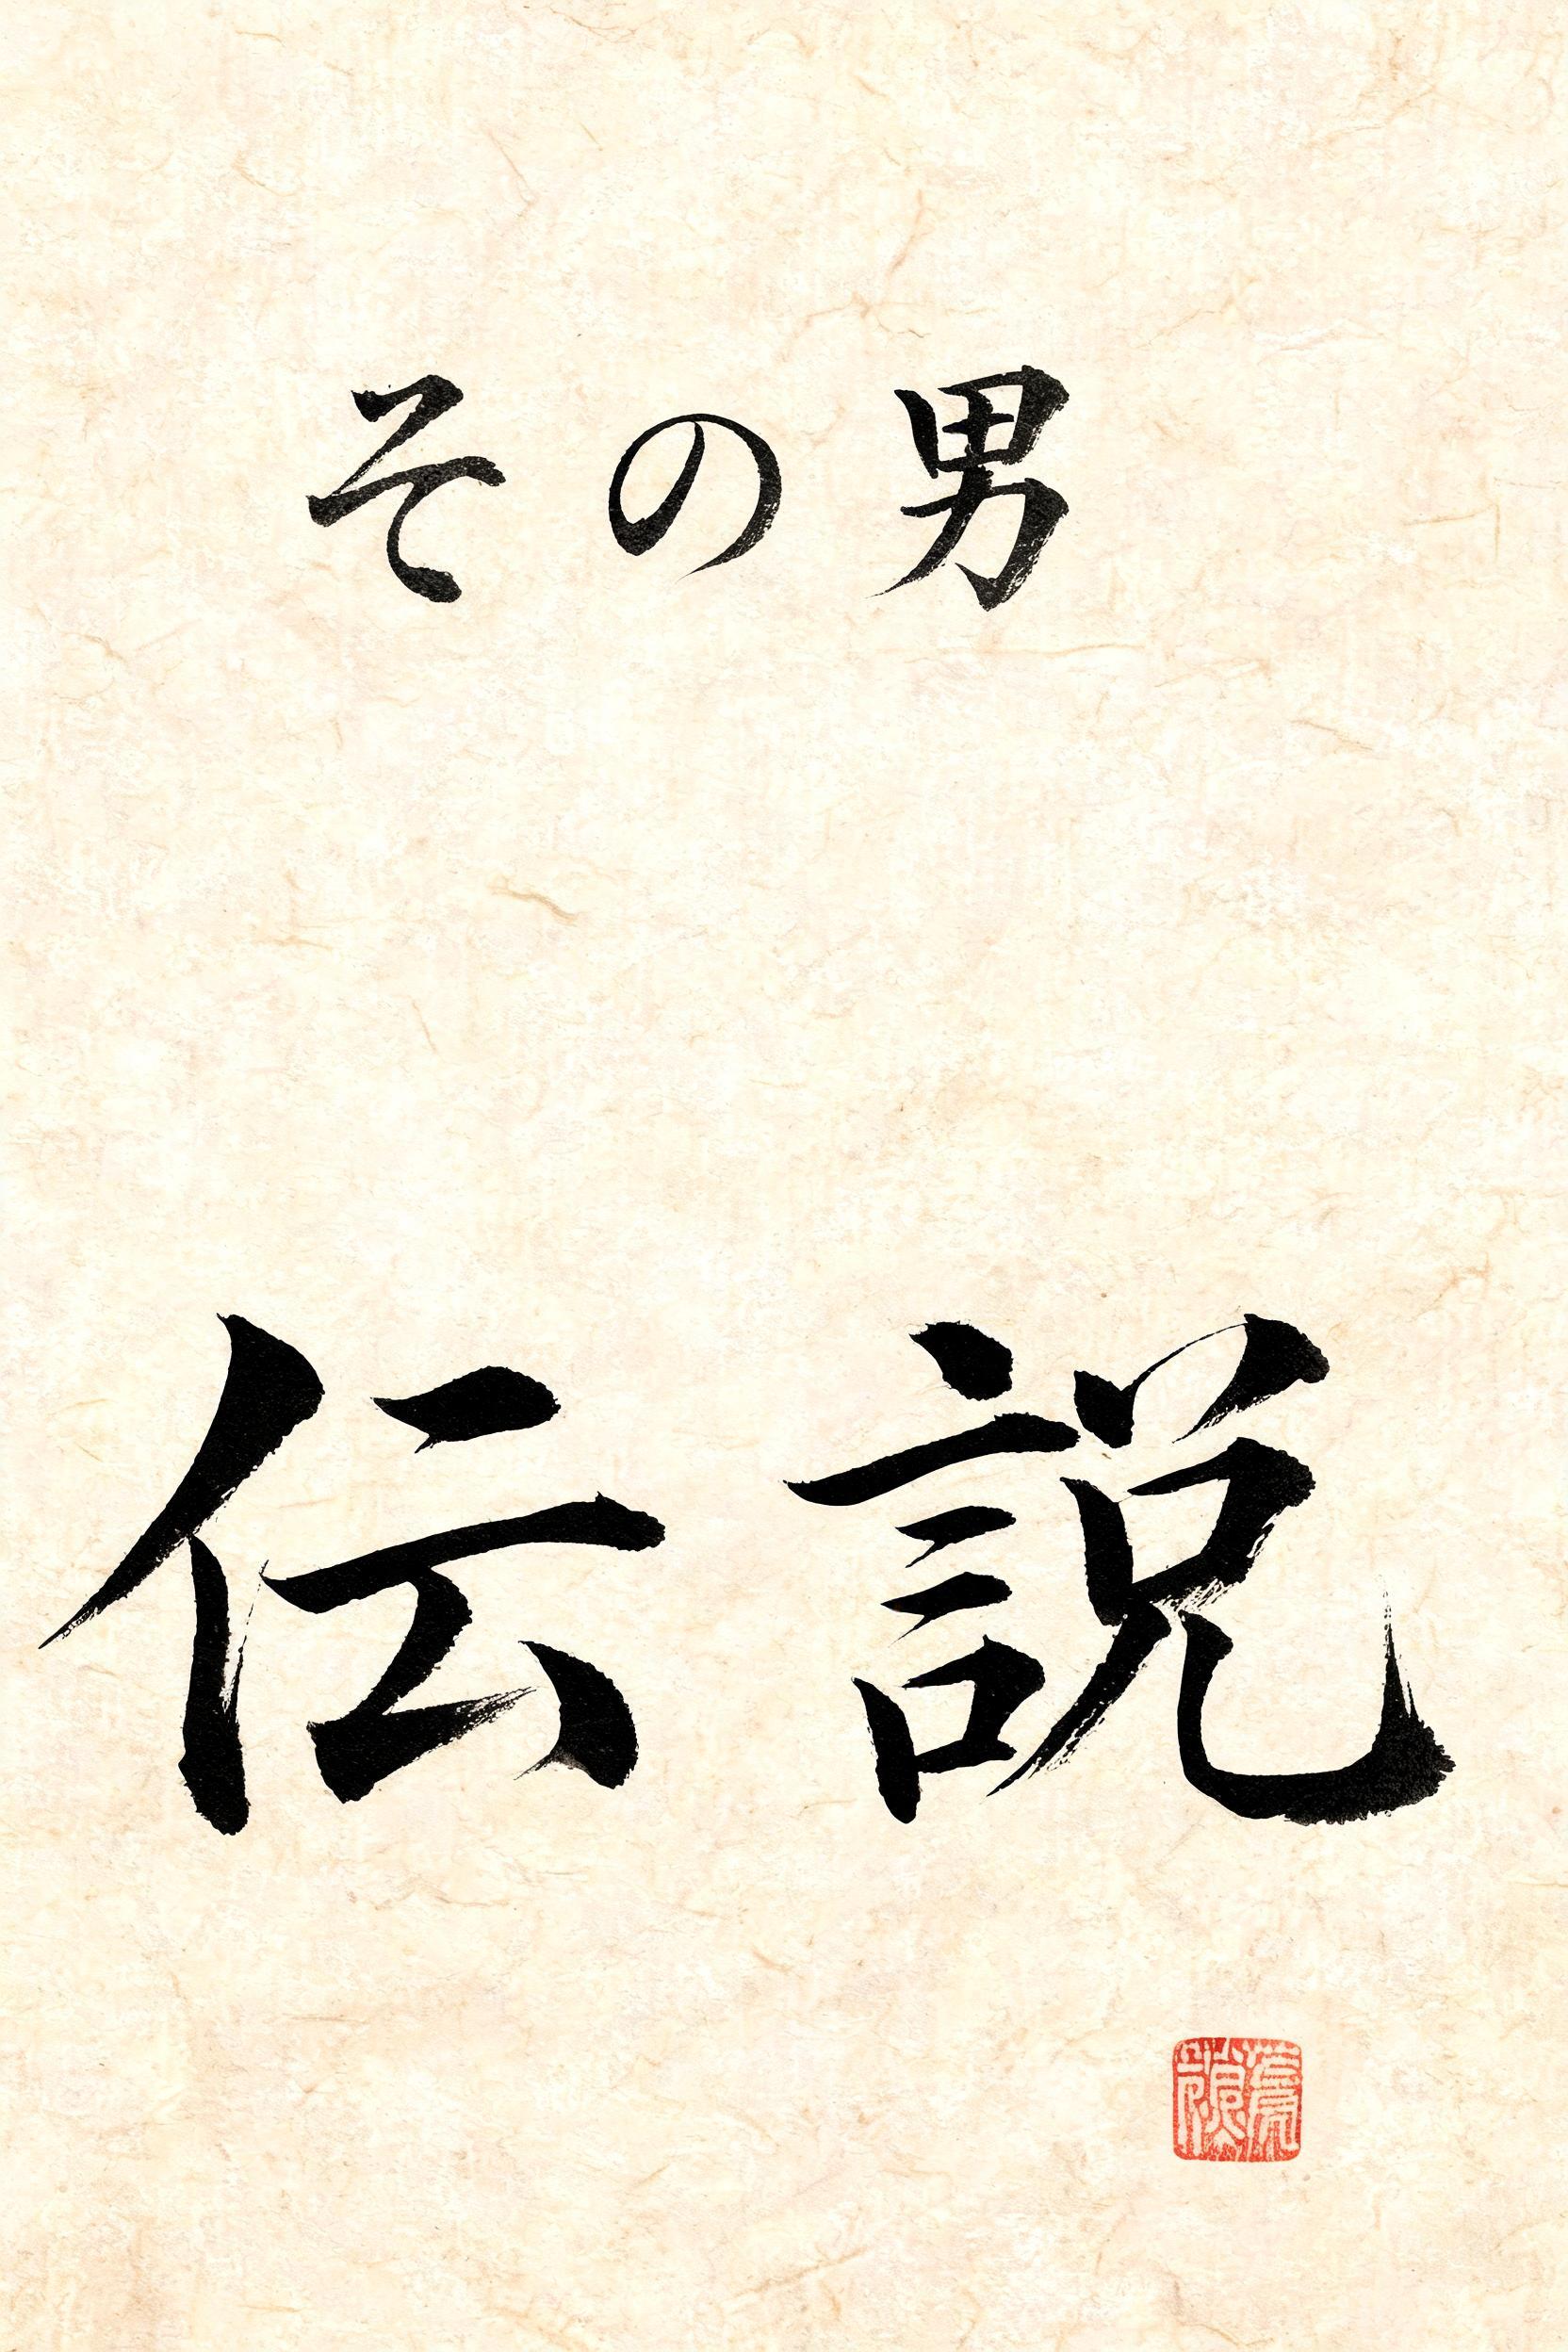 その男
伝説